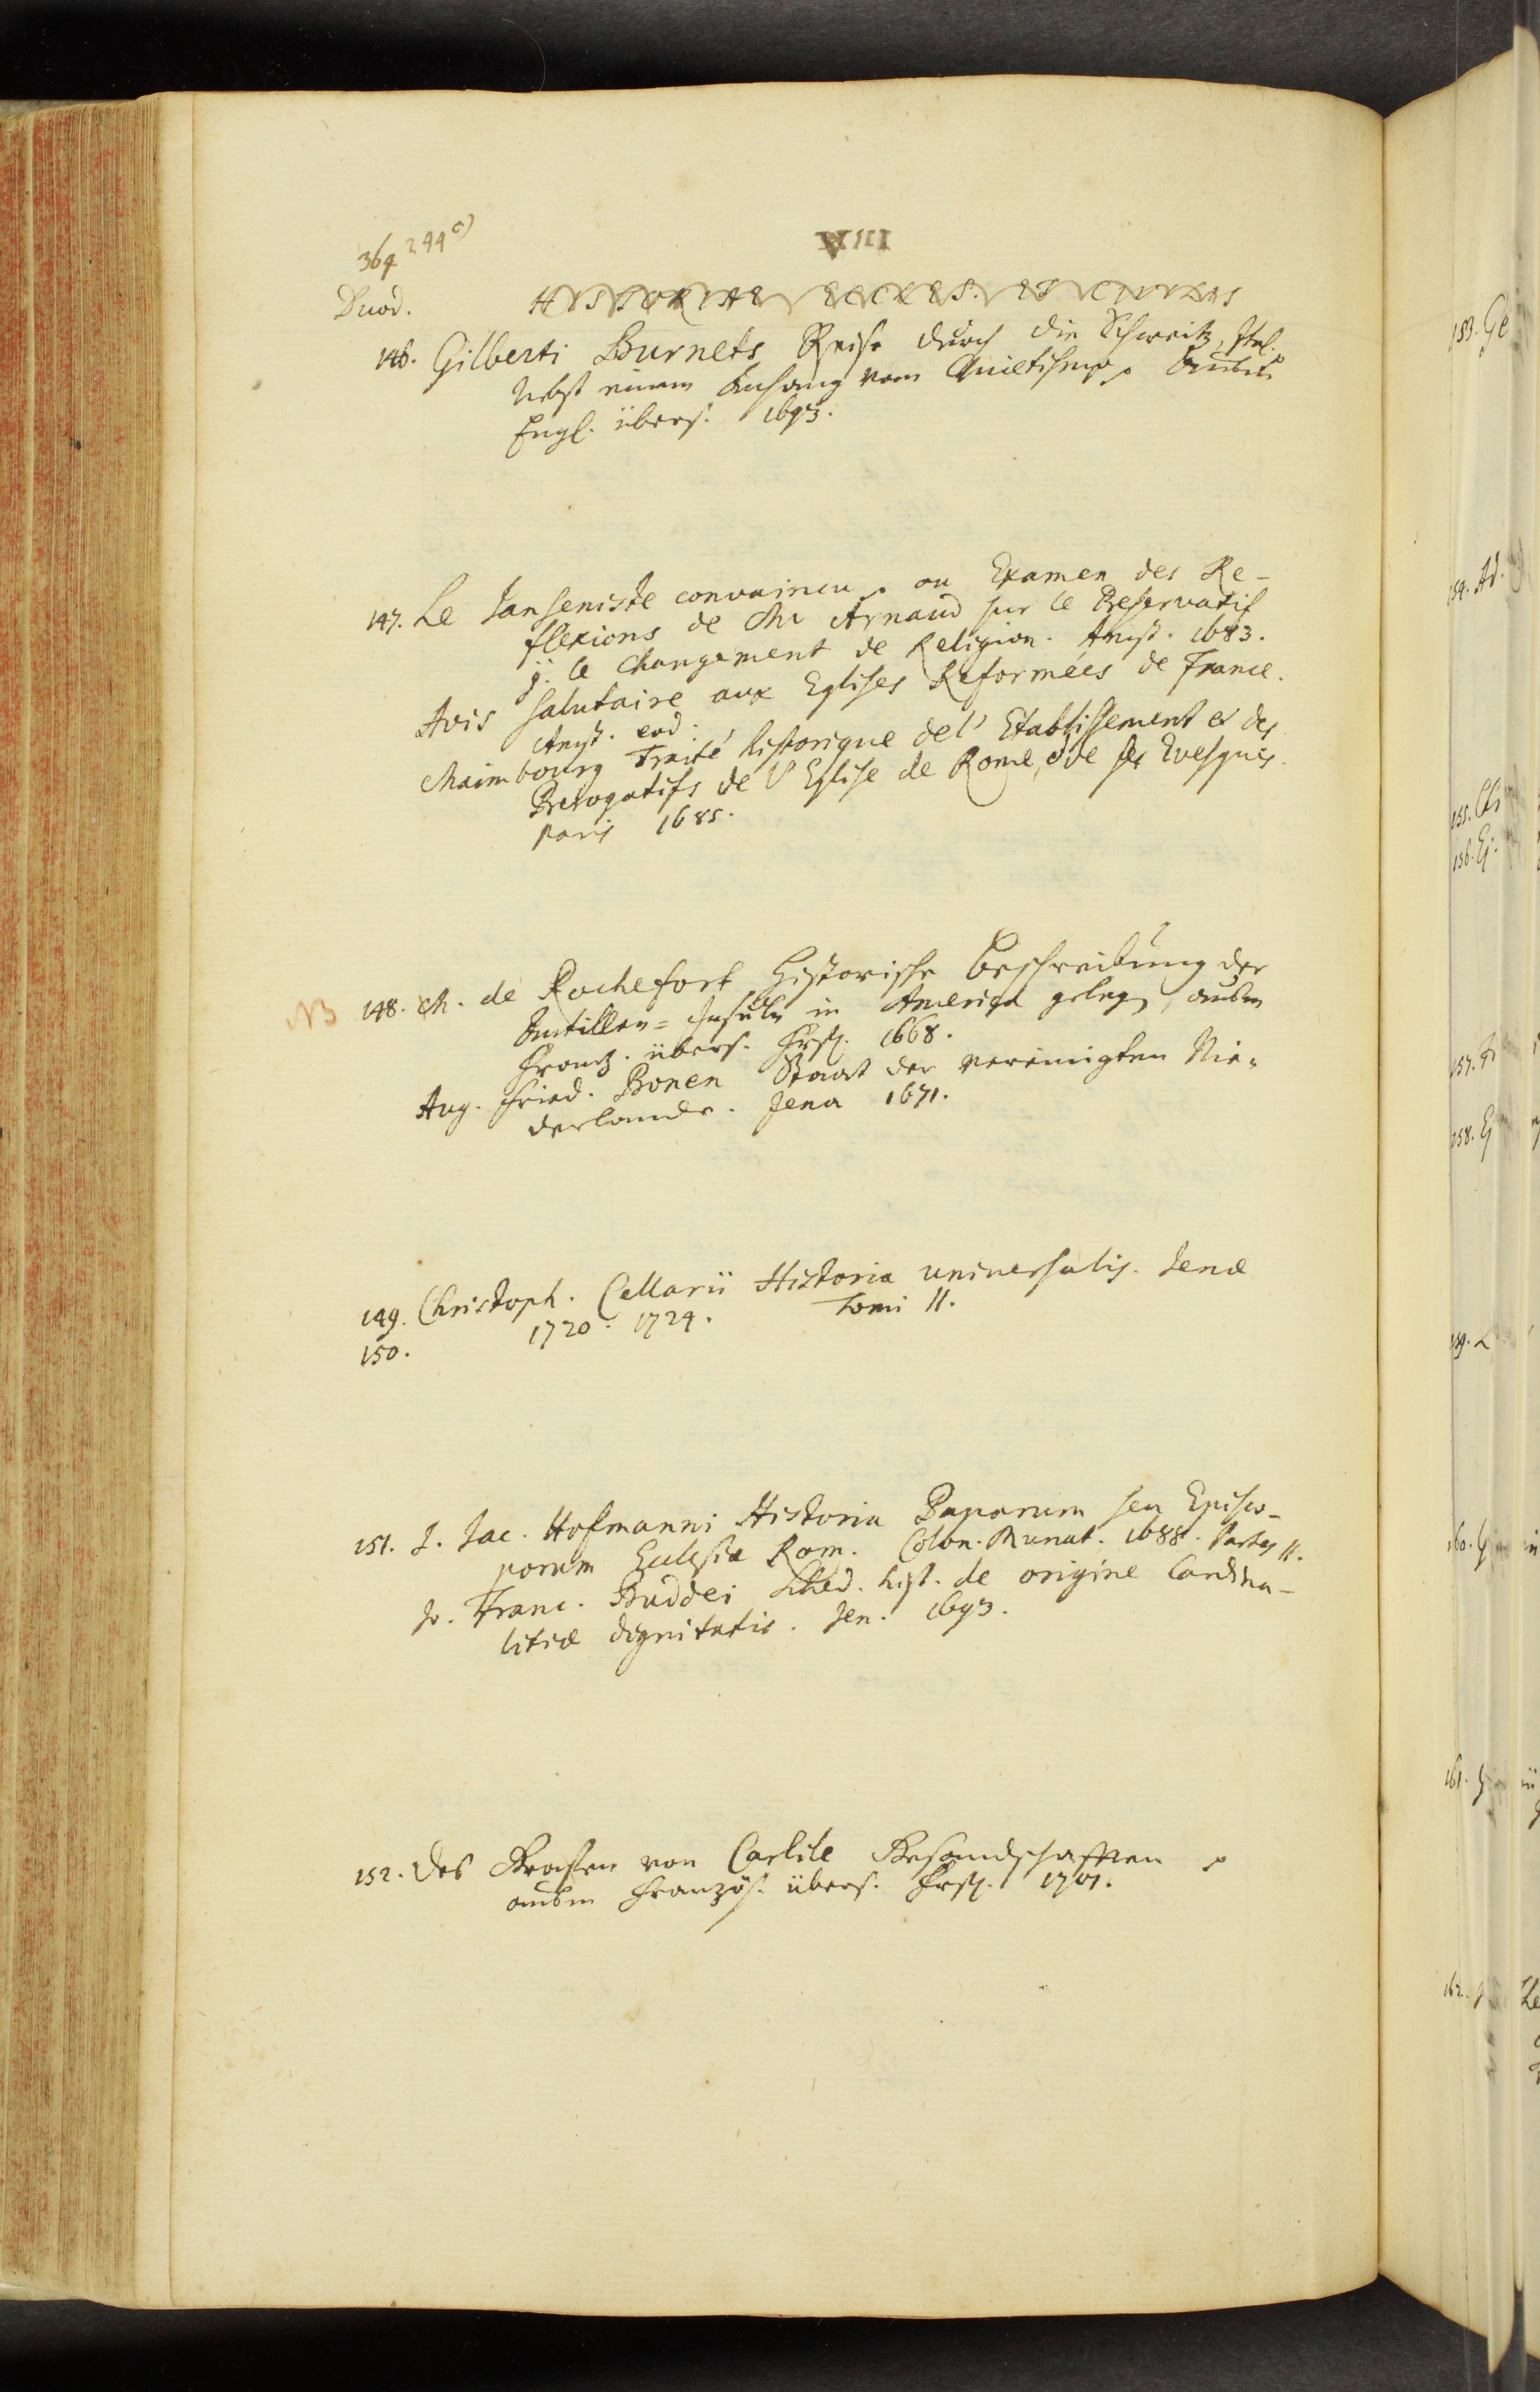 364 244c)
VIII
Duod. HISTORIAE ECCLES. ET CIVILIS
146. Gilberti Burnets Reise durch die Schweitz, Ital.
Nebst einem Anhang vom Quietismo. außm
Engl. übers. 1693.
147. Le Janseniste convaincu, ou Examen des Re-
flexions de Mr Arnaud sur le Preservatif
g. le Changement de Religion. Amst. 1683.
Avis salutaire aux Eglises Reformées de France.
Amst. eod.
Maimbourg Traité historique de l'Etablissement et des
Prerogatifs de l'Eglise de Rome, & de ses Evesques.
Paris 1685.
NB 148. M. de Rochefort Historische Beschreibung der
Antillen-Insuln in America gelegen, außm
Frantz. übers. Frft. 1668.
Aug. Fried. Bonen Staat der vereinigten Nie-
derlande. Jena 1671.
149. Christoph. Cellarii Historia universalis. Jenæ
150. 1720. 1724. Tomi II.
151. J. Jac. Hofmanni Historia Paparum seu Episco-
porum Ecclesiæ Rom. Colon. Munat. 1688. Partes II.
Jo. Franc. Buddei Sched. hist. de origine Cardina-
litiæ dignitatis. Jen. 1693.
152. Des Grafen von Carlile Gesandschafften
außm Französ. übers. Frft. 1701.
153. Ge
154. Ad.
155. Ch
156. Ej.
157.
158. Ej
159. L
160.
161.
162.